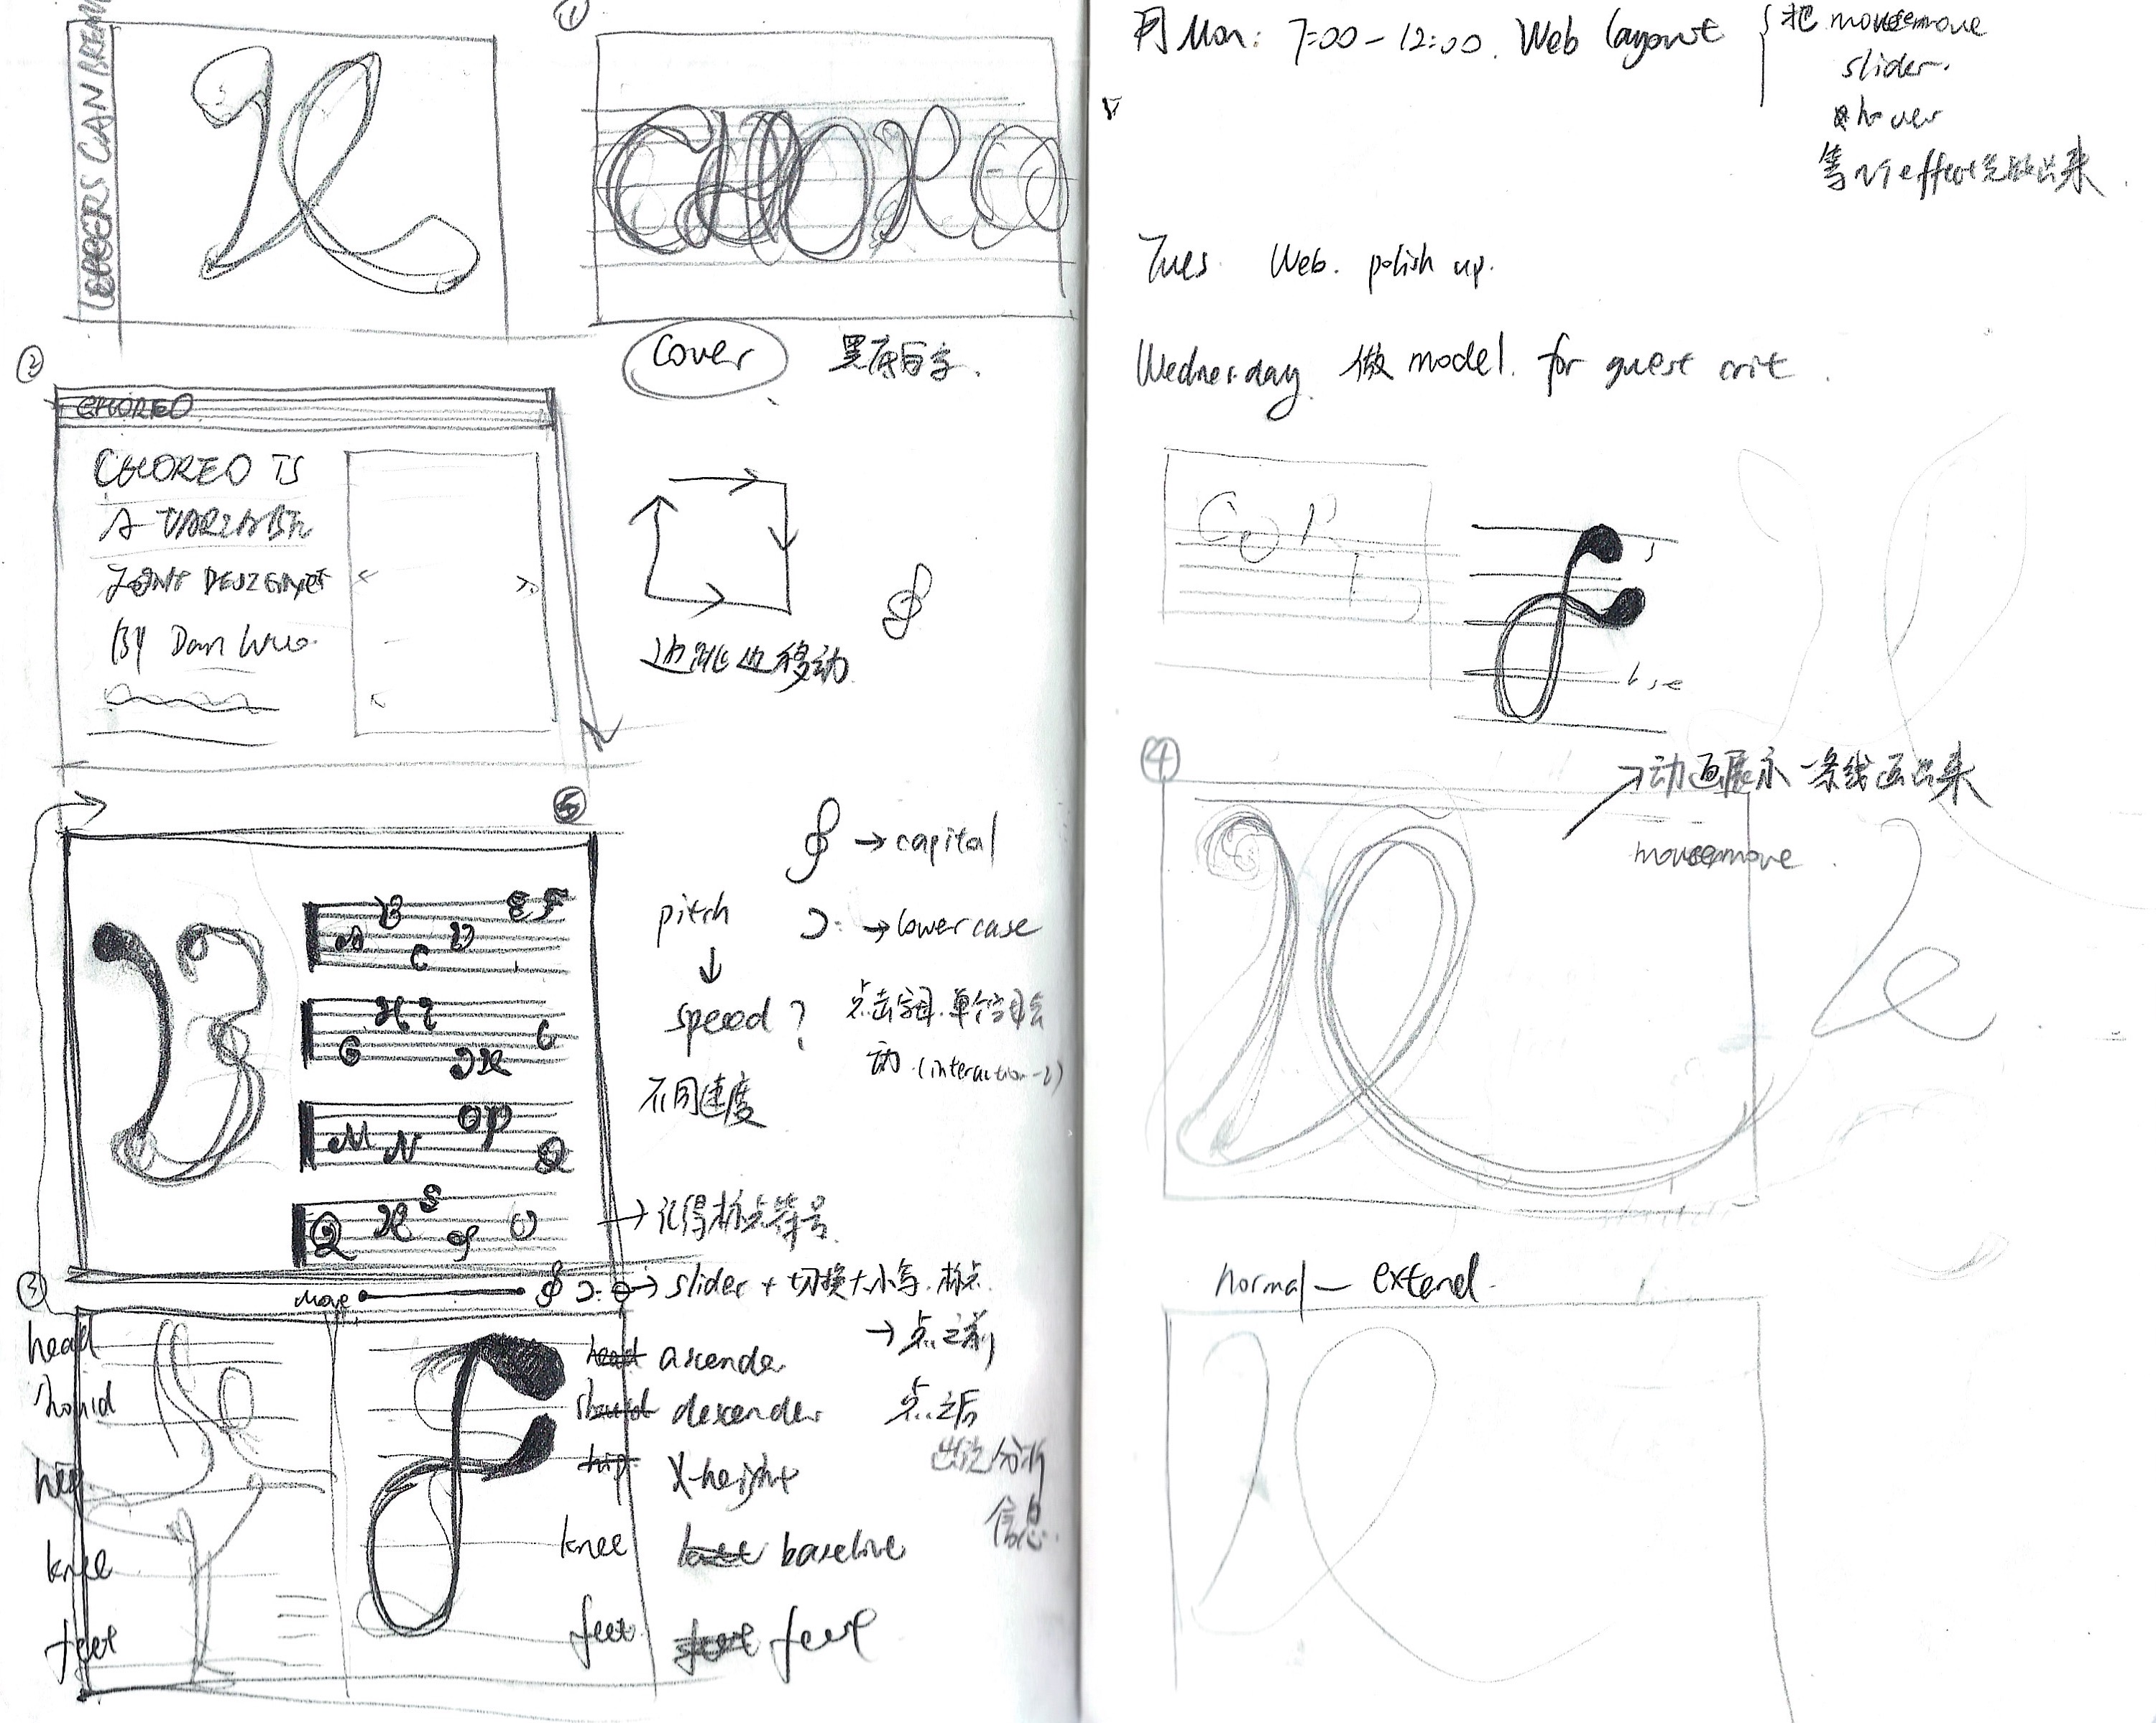 LETTERS CAN BE
①
CHOREO
cover
黑底白字.
②
CHOREO
CHOREO IS
A VARIABLE
FONT DESIGNED
BY Dan Wu
边跳边移动
⑤
A B C D E F
G H I J K L
M N O P Q
→ capital
pitch
↓
speed ?
→ lower case
点击字母.单个字母会
动.(interaction-2)
不同速度
→ 记得标点符号.
③
move
→ slider + 切换大小写.标点
→ 点之前
点之后
出说分析
信息.
head
hip
knee
feet
head ascender
descender
hip X-height
knee baseline
feet feet
Mon: 7:00 - 12:00. Web layout
把 mousemove
slider.
hover
等effect先做出来.
Tues. Web. polish up.
Wednesday. 做 model. for guest crit.
④
→ 动画展示 一条线画出来
mousemove.
normal — extend.